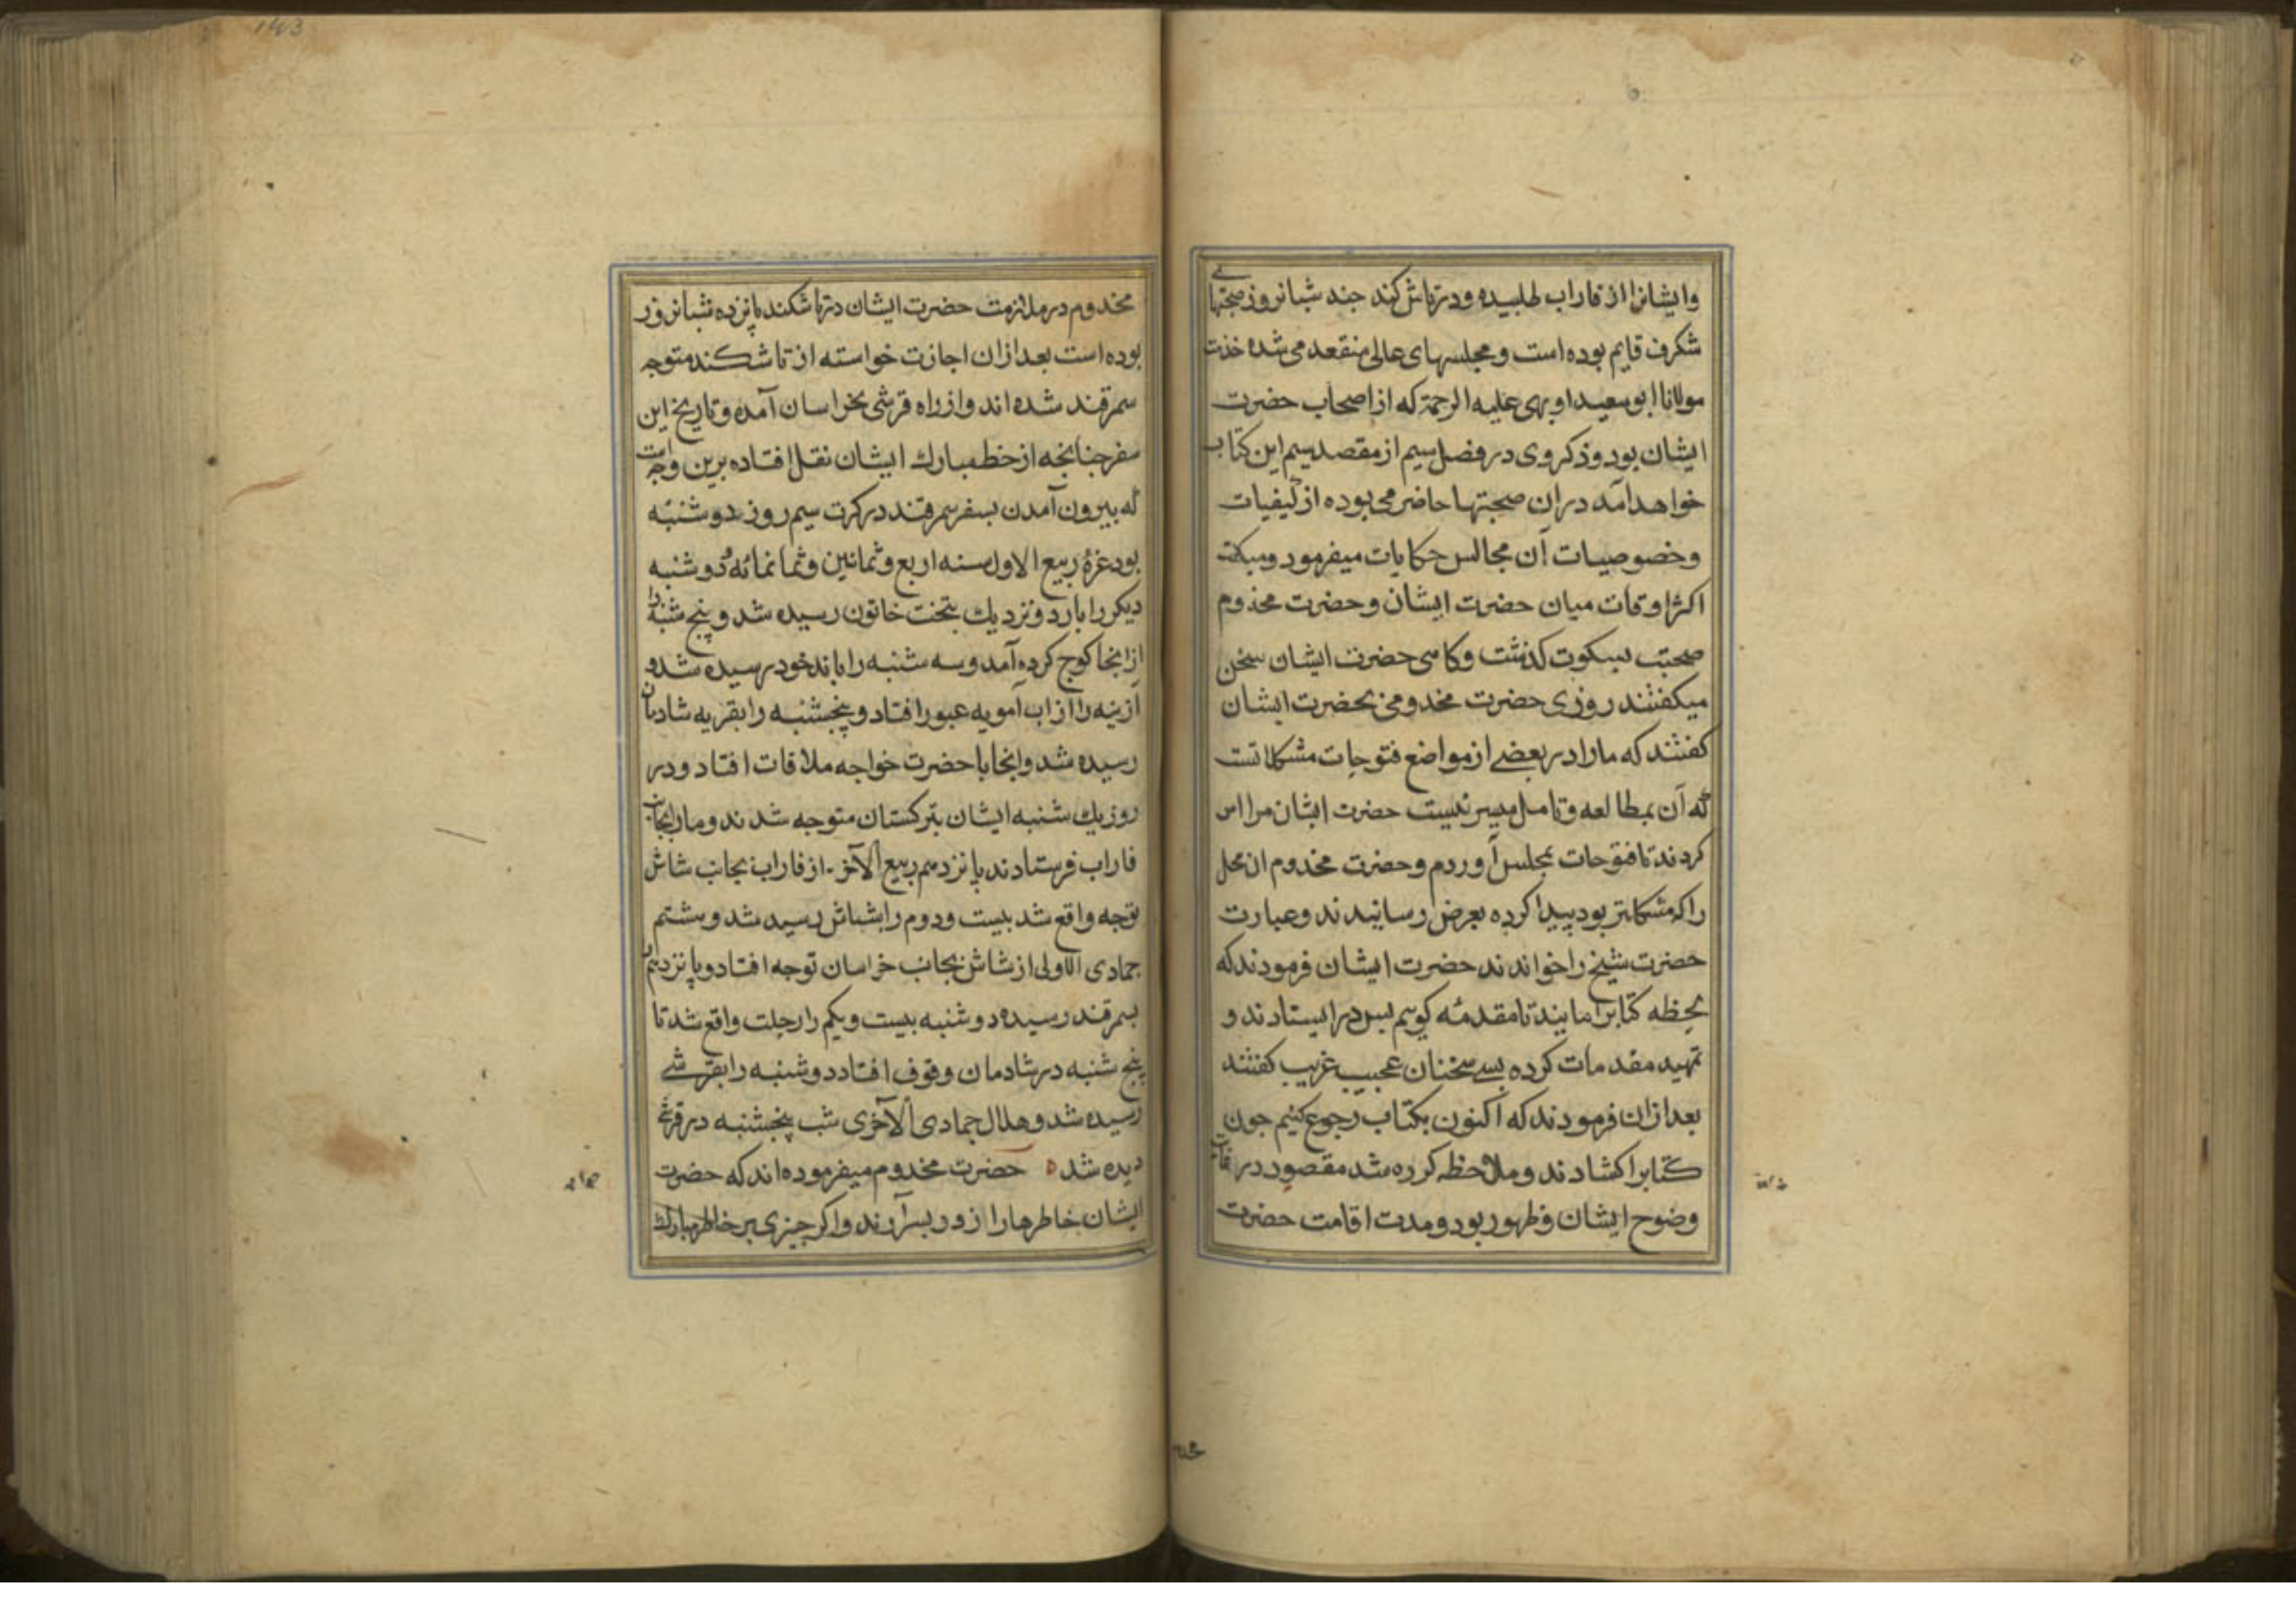 وایشانرا از فاراب طلبیده ودرتاش کند جند شبانروز صحبتهای
شکرف قایم بوده است ومجلسهای عالی منقعد می شده خذت
مولانا ابو سعید اوبهی علیه الرحمة که از اصحاب حضرت
ایشان بود وذکر وی در فصل سیم از مقصد سیم این کتاب
خواهد آمد در ان صحبتها حاضر می بوده از کیفیات
وخصوصیات آن مجالس حکایات میفرمود ومیکفت
اکثر اوقات میان حضرت ایشان وحضرت مخدوم
صحبت بسکوت کذشت وکاهی حضرت ایشان سخن
میکفتند روزی حضرت مخدومی بحضرت ایشان
کفتند که مارا در بعضی از مواضع فتوحات مشکلاتست
که آن بمطالعه وتامل میسر نیست حضرت ایشان مرا امر
کردند تا فتوحات بمجلس آوردم وحضرت مخدوم ان محل
را که مشکلتر بود پیدا کرده بعرض رسانیدند وعبارت
حضرت شیخ را خواندند حضرت ایشان فرمودند که
لحظه کتابرا مانید تا مقدمه کویم پس در ایستادند و
تمهید مقدمات کرده بسے سخنان عجیب غریب کفتند
بعد ازان فرمودند که اکنون بکتاب رجوع کنیم جون
کتابرا کشادند وملاحظه کرده شد مقصود در غایت
وضوح ایشان وظهور بود ومدت اقامت حضرت
مخدوم در ملازمت حضرت ایشان درتاشکند پانزده شبانروز
بوده است بعد ازان اجازت خواسته از تاشکند متوجه
سمرقند شده اند واز راه قرشی بخراسان آمده وتاریخ این
سفر جنانجه از خط مبارك ایشان نقل افتاده برین وجه است
که بیرون آمدن بسفر سمرقند در کرت سیم روز دوشنبه
بود غرهٔ ربیع الاول سنه اربع وثمانین وثمانمائه ودوشنبه
دیکر را بارد ونزدیك بتخت خاتون رسیده شد وپنج شنبه را
ازانجا کوج کرده آمد وسه شنبه را باندخود رسیده شد و
آزینه را از اب آمویه عبور افتاد وپنجشنبه را بقریه شادمان
رسیده شد وانجا با حضرت خواجه ملاقات افتاد ودر
روز یك شنبه ایشان بترکستان متوجه شدند ومارا بجانب
فاراب فرستادند پانزدهم ربیع الآخر از فاراب بجانب شاش
توجه واقع شد بیست ودوم را بشاش رسید شد وهشتم
جمادی الاولی از شاش بجانب خراسان توجه افتاد وپانزدهم
بسمرقند رسیده دوشنبه بیست ویکم را رحلت واقع شد تا
پنج شنبه در شادمان وقوف افتاد دوشنبه را بقرشے
رسیده شد وهلال جمادی الآخری شب پنجشنبه در قرشے
دیده شد ه حضرت مخدوم میفرموده اند که حضرت
ایشان خاطرها را از دور بسر آرند واکر جیزی بر خاطر مبارك